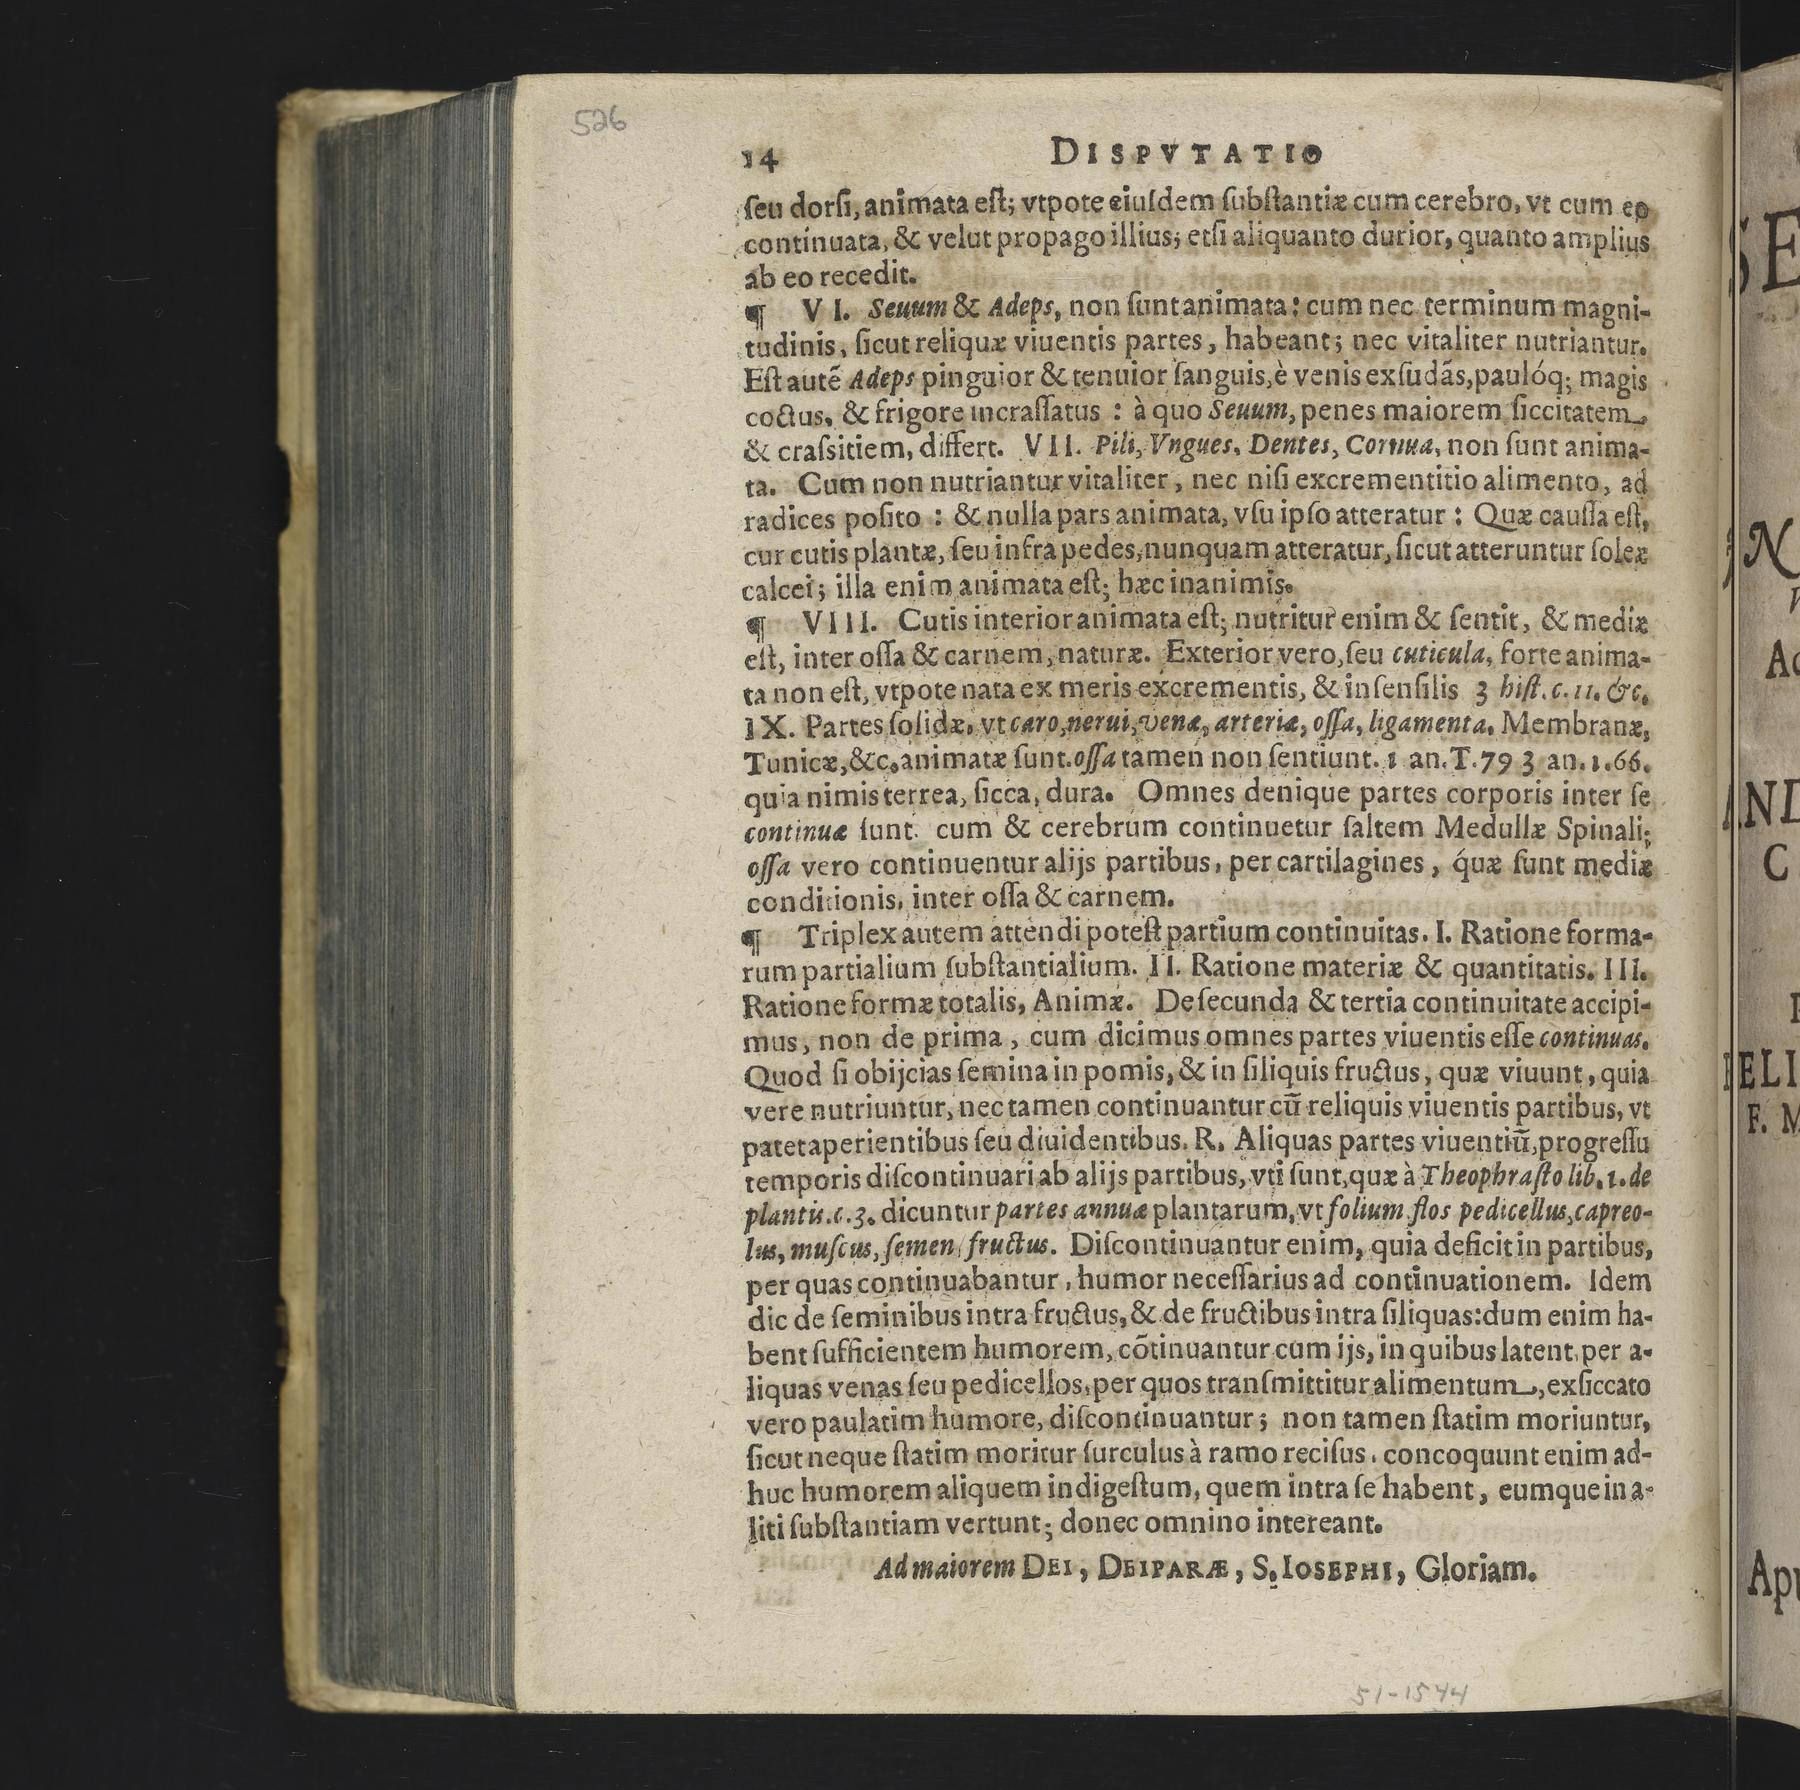 526
14 DISPVTATIO
ſeu dorſi, animata eſt; vtpote eiuſdem ſubſtantiæ cum cerebro, vt cum eo
continuata, & velut propago illius; etſi aliquanto durior, quanto amplius
ab eo recedit.
¶ VI. Seuum & Adeps, non ſunt animata: cum nec terminum magni-
tudinis, ſicut reliquæ viuentis partes, habeant; nec vitaliter nutriantur.
Eſt autẽ Adeps pinguior & tenuior ſanguis, è venis exſudãs, paulóq; magis
coctus, & frigore incraſſatus : à quo Seuum, penes maiorem ſiccitatem
& craſsitiem, differt. VII. Pili, Vngues, Dentes, Cornua, non ſunt anima-
ta. Cum non nutriantur vitaliter, nec niſi excrementitio alimento, ad
radices poſito : & nulla pars animata, vſu ipſo atteratur : Quæ cauſſa eſt,
cur cutis plantæ, ſeu infra pedes, nunquam atteratur, ſicut atteruntur ſoleæ
calcei; illa enim animata eſt; hæc inanimis.
¶ VIII. Cutis interior animata eſt; nutritur enim & ſentit, & mediæ
eſt, inter oſſa & carnem, naturæ. Exterior vero, ſeu cuticula, forte anima-
ta non eſt, vtpote nata ex meris excrementis, & inſenſilis 3 hiſt. c. 11. &c.
IX. Partes ſolidæ, vt caro, nerui, venæ, arteriæ, oſſa, ligamenta, Membranæ,
Tunicæ, &c. animatæ ſunt. oſſa tamen non ſentiunt. 1 an. T. 79 3 an. 1. 66.
quia nimis terrea, ſicca, dura. Omnes denique partes corporis inter ſe
continuæ ſunt. cum & cerebrum continuetur ſaltem Medullæ Spinali;
oſſa vero continuentur alijs partibus, per cartilagines, quæ ſunt mediæ
conditionis, inter oſſa & carnem.
¶ Triplex autem attendi poteſt partium continuitas. I. Ratione forma-
rum partialium ſubſtantialium. II. Ratione materiæ & quantitatis. III.
Ratione formæ totalis, Animæ. De ſecunda & tertia continuitate accipi-
mus, non de prima, cum dicimus omnes partes viuentis eſſe continuas.
Quod ſi obijcias ſemina in pomis, & in ſiliquis fructus, quæ viuunt, quia
vere nutriuntur, nec tamen continuantur cũ reliquis viuentis partibus, vt
patet aperientibus ſeu diuidentibus. R. Aliquas partes viuentiũ, progreſſu
temporis diſcontinuari ab alijs partibus, vti ſunt, quæ à Theophraſto lib. 1. de
plantis. c. 3. dicuntur partes annuæ plantarum, vt folium flos pedicellus, capreo-
lus, muſcus, ſemen, fructus. Diſcontinuantur enim, quia deficit in partibus,
per quas continuabantur, humor neceſſarius ad continuationem. Idem
dic de ſeminibus intra fructus, & de fructibus intra ſiliquas: dum enim ha-
bent ſufficientem humorem, cõtinuantur cum ijs, in quibus latent, per a-
liquas venas ſeu pedicellos, per quos tranſmittitur alimentum, exſiccato
vero paulatim humore, diſcontinuantur; non tamen ſtatim moriuntur,
ſicut neque ſtatim moritur ſurculus à ramo reciſus, concoquunt enim ad-
huc humorem aliquem indigeſtum, quem intra ſe habent, eumque in a-
liti ſubſtantiam vertunt; donec omnino intereant.
Ad maiorem DEI, DEIPARÆ, S. IOSEPHI, Gloriam.
51-1544